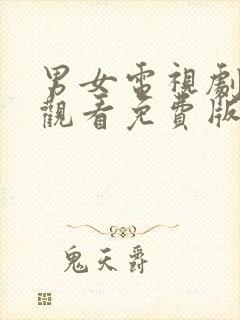 男女電視劇
觀看免費版
鬼天爵